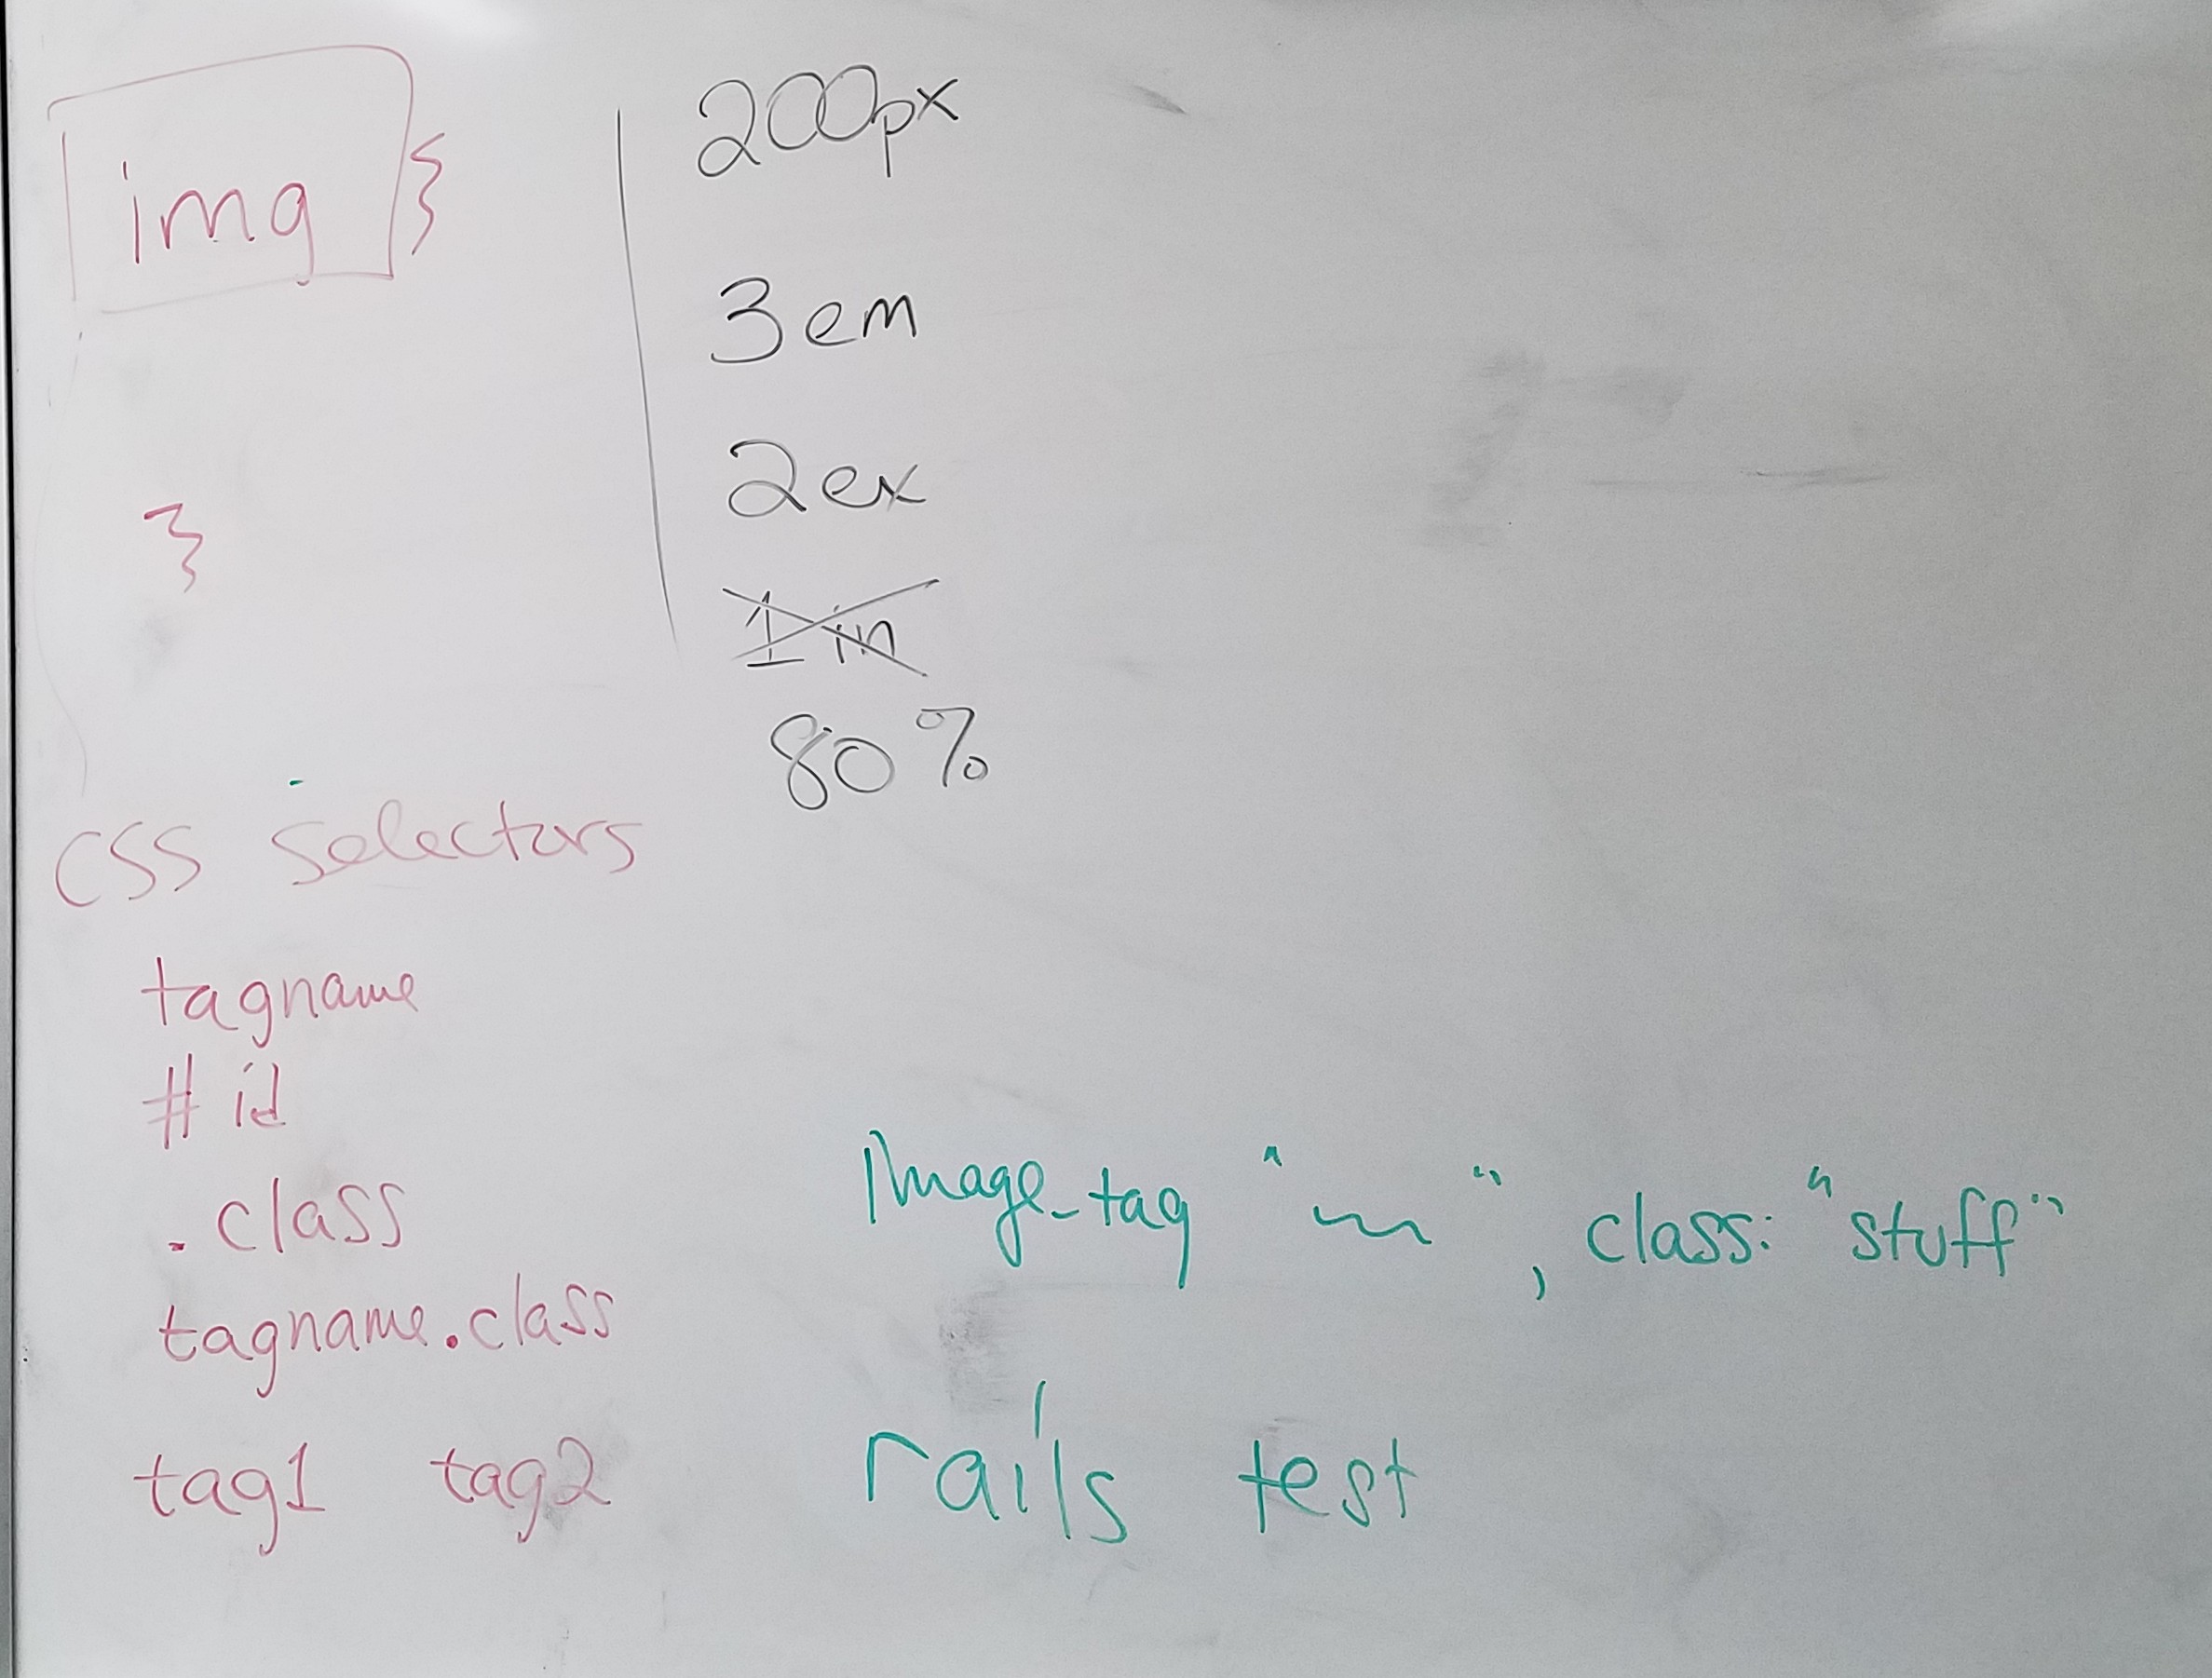 img {
}
200px
3em
2ex
1in
80%
CSS selectors
tagname
#id
.class
tagname.class
tag1 tag2
image_tag "~~", class: "stuff"
rails test